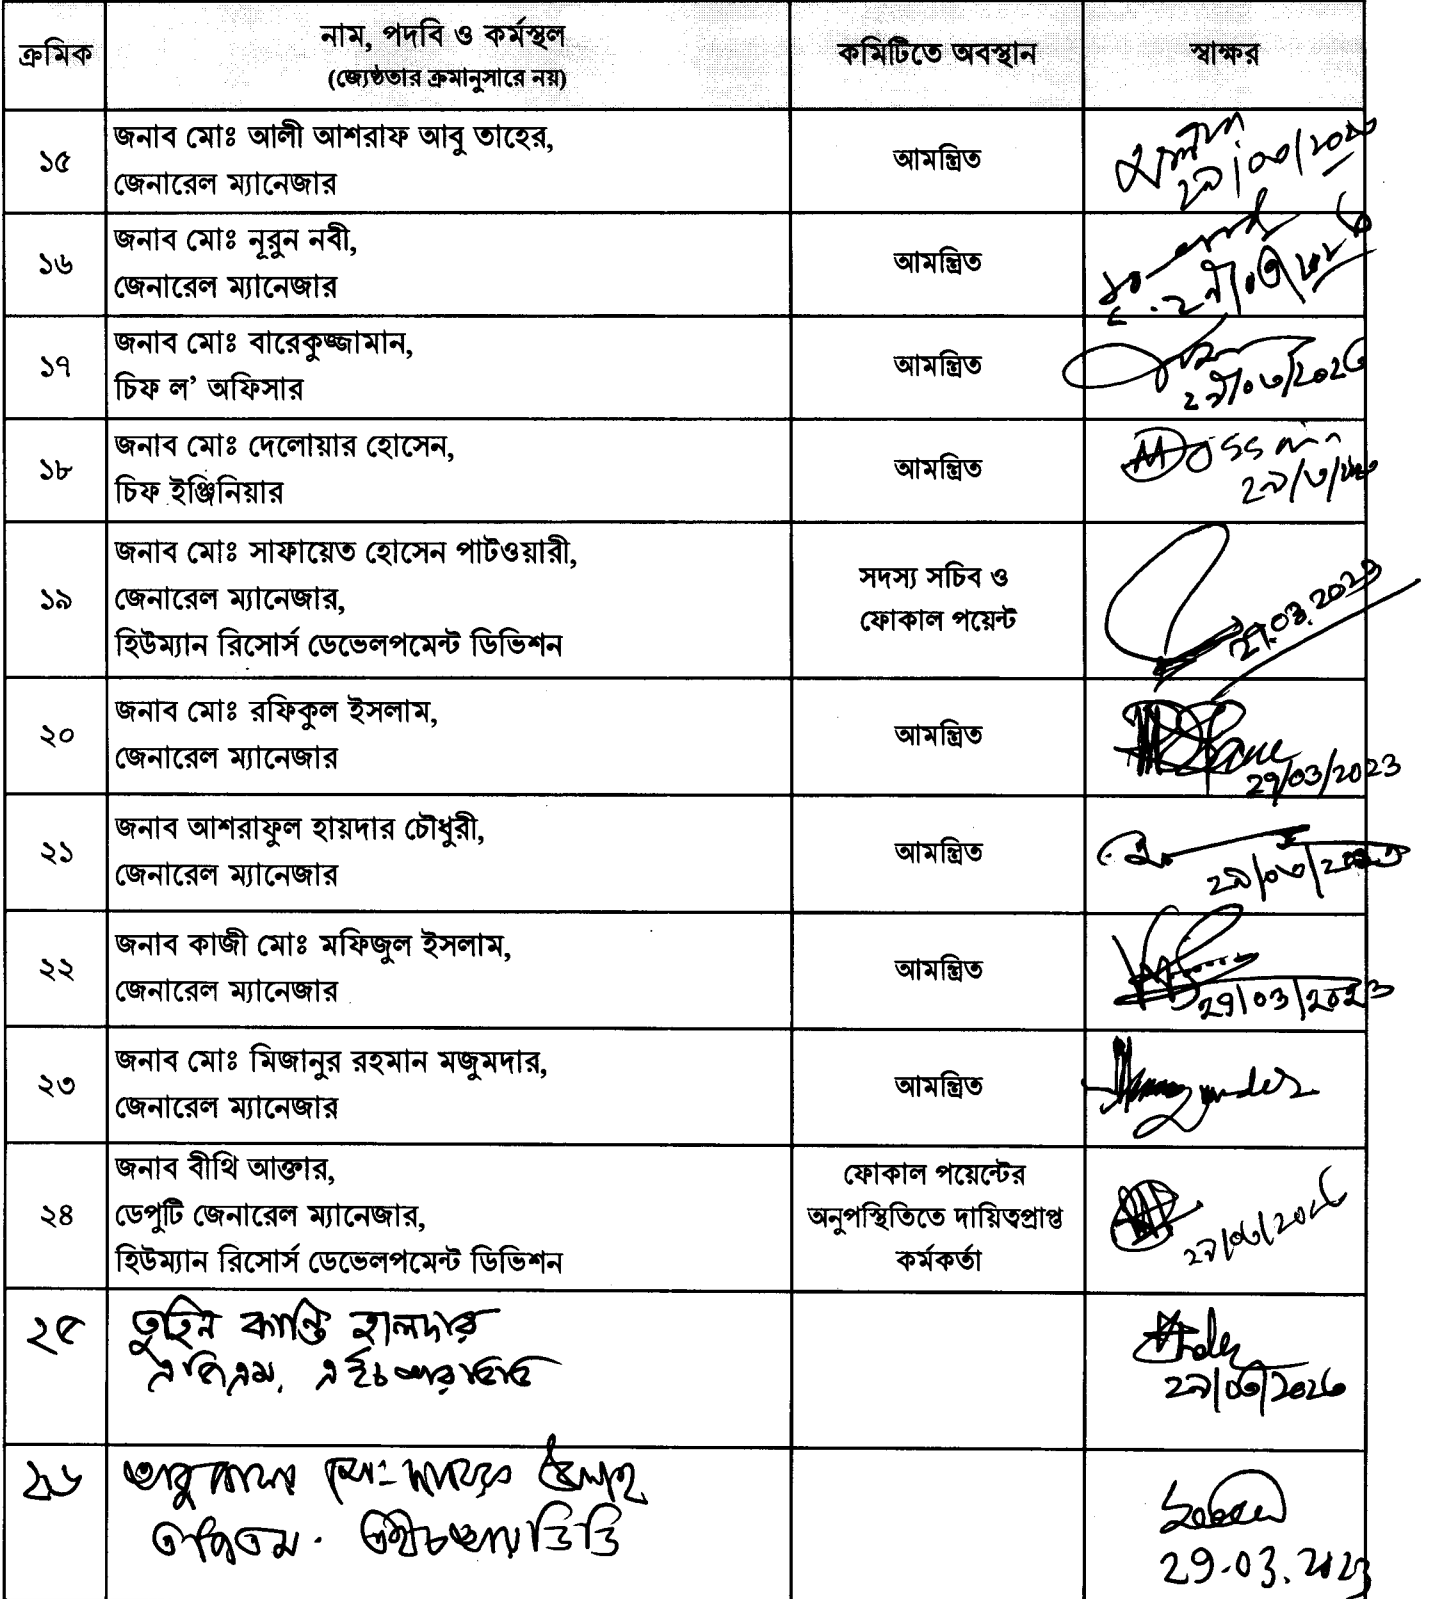 ক্রমিক
নাম, পদবি ও কর্মস্থল
(জ্যেষ্ঠতার ক্রমানুসারে নয়)
কমিটিতে অবস্থান
স্বাক্ষর
১৫
জনাব মোঃ আলী আশরাফ আবু তাহের,
জেনারেল ম্যানেজার
আমন্ত্রিত
২৯/০৩/২০২৩
১৬
জনাব মোঃ নূরুন নবী,
জেনারেল ম্যানেজার
আমন্ত্রিত
১৭
জনাব মোঃ বারেকুজ্জামান,
চিফ ল’ অফিসার
আমন্ত্রিত
২৯/০৩/২০২৩
১৮
জনাব মোঃ দেলোয়ার হোসেন,
চিফ ইঞ্জিনিয়ার
আমন্ত্রিত
১৯
জনাব মোঃ সাফায়েত হোসেন পাটওয়ারী,
জেনারেল ম্যানেজার,
হিউম্যান রিসোর্স ডেভেলপমেন্ট ডিভিশন
সদস্য সচিব ও
ফোকাল পয়েন্ট
29.03.2023
২০
জনাব মোঃ রফিকুল ইসলাম,
জেনারেল ম্যানেজার
আমন্ত্রিত
29/03/2023
২১
জনাব আশরাফুল হায়দার চৌধুরী,
জেনারেল ম্যানেজার
আমন্ত্রিত
২৯/০৩/২০২৩
২২
জনাব কাজী মোঃ মফিজুল ইসলাম,
জেনারেল ম্যানেজার
আমন্ত্রিত
29/03/2023
২৩
জনাব মোঃ মিজানুর রহমান মজুমদার,
জেনারেল ম্যানেজার
আমন্ত্রিত
২৪
জনাব বীথি আক্তার,
ডেপুটি জেনারেল ম্যানেজার,
হিউম্যান রিসোর্স ডেভেলপমেন্ট ডিভিশন
ফোকাল পয়েন্টের
অনুপস্থিতিতে দায়িত্বপ্রাপ্ত
কর্মকর্তা
২৯/০৩/২০২৩
২৫
তুহিন কান্তি হালদার
এজিএম, এইচআরডিডি
২৯/০৩/২০২৩
২৬
এজিএম. এইচআরডিডি
29.03.2023